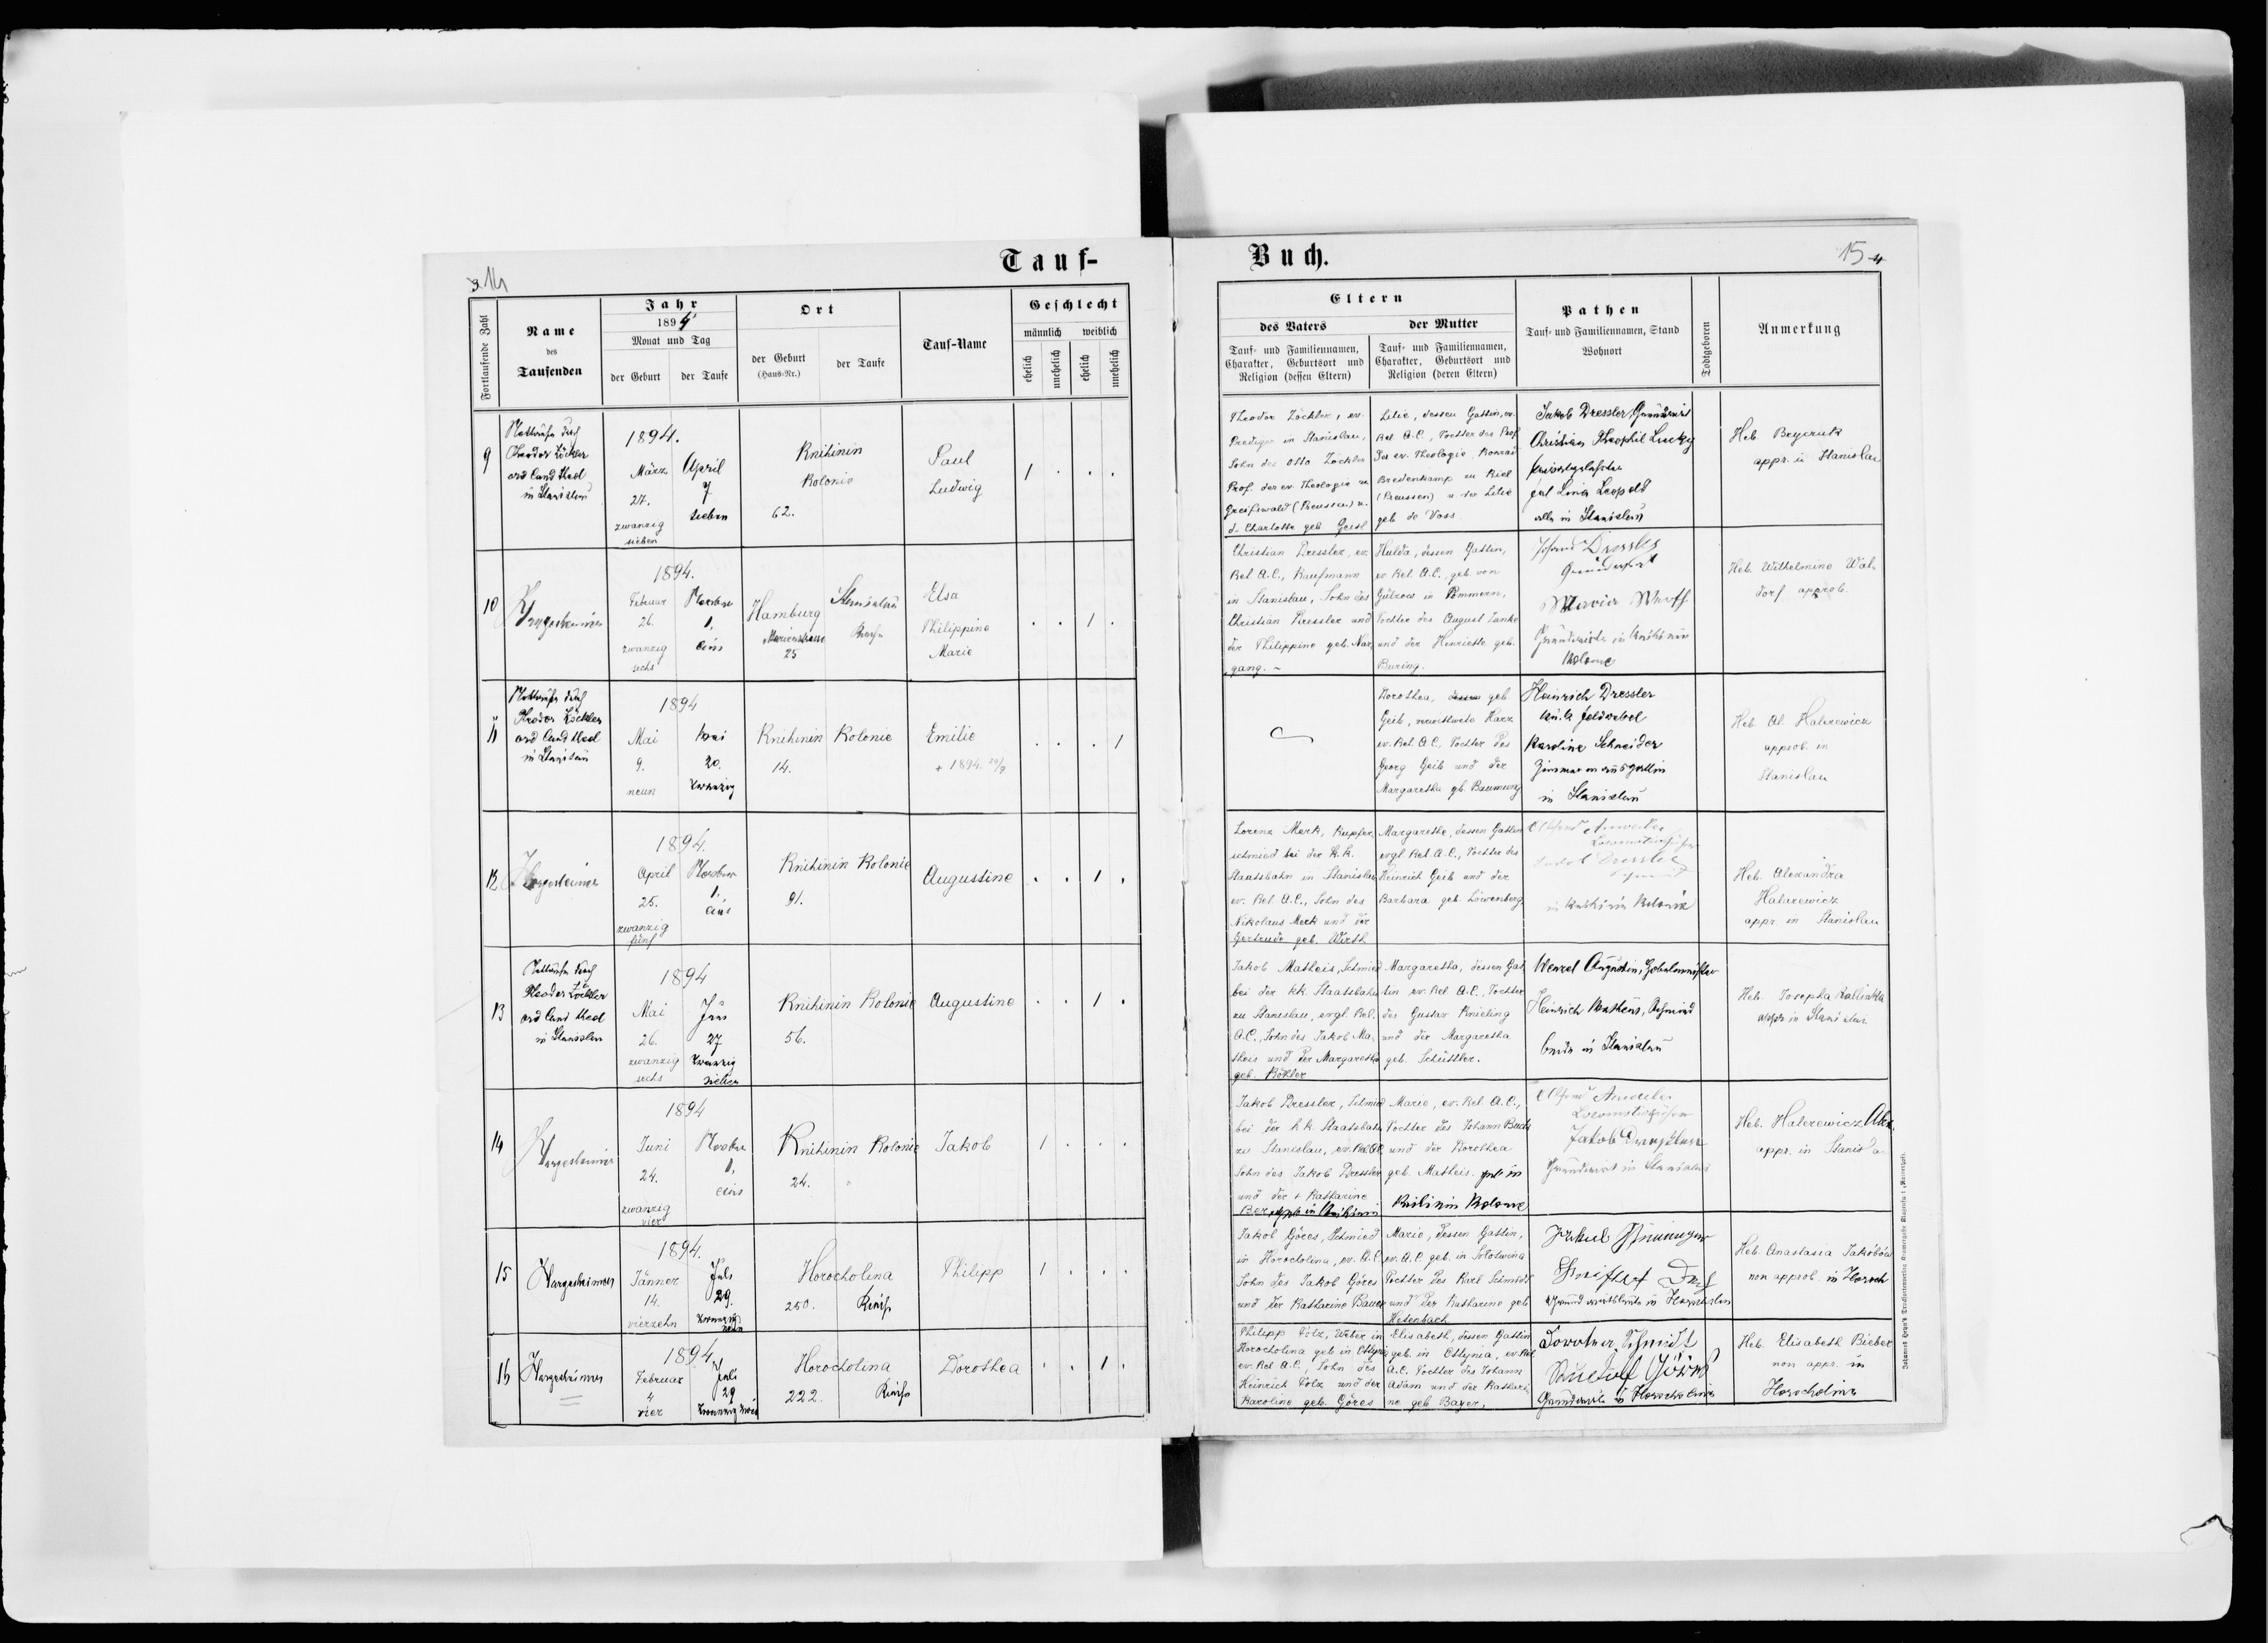 Tauf-
Buch.
14
15
Fortlaufende Zahl
Name
des
Taufenden
Jahr
1894
Monat und Tag
der Geburt
der Taufe
Ort
der Geburt
(Haus-Nr.)
der Taufe
Tauf-Name
Geschlecht
männlich
weiblich
ehelich
unehelich
ehelich
unehelich
Eltern
des Vaters
der Mutter
Tauf- und Familiennamen,
Charakter, Geburtsort und
Religion (dessen Eltern)
Tauf- und Familiennamen,
Charakter, Geburtsort und
Religion (deren Eltern)
Pathen
Tauf- und Familiennamen, Stand
Wohnort
Todtgeboren
Anmerkung
9
Nottaufe durch
Theodor Zöckler
ord Cand theol
in Stanislau
1894.
März
27.
zwanzig
sieben
April
7
sieben
Knihinin
Kolonie
62.
Paul
Ludwig
1 . . .
Theodor Zöckler, ev.
Prediger in Stanislau,
Sohn des Otto Zöckler
Prof. der ev. Theologie in
Greifswald (Preussen) u.
d. Charlotte geb
Lilie, dessen Gattin, ev.
Rel. A.C., Tochter des Prof.
der ev. Theologie, Konrad
Bredenkamp in Kiel
(Preussen) u der Lilie
geb de Voss
Jakob Dressler, Grundwirt
Christian Theophil Lucky
Lina Leopold
alle in Stanislau
Heb.
appr. in Stanislau
10
Hargesheimer
1894.
Februar
26.
zwanzig
sechs
1.
eins
Hamburg
Marienstrasse
25
Stanislau
Elsa
Philippine
Marie
. . 1 .
Christian Dressler, ev.
Rel A.C., Kaufmann
in Stanislau, Sohn des
Christian Dressler und
der Philippine geb. Nar,
gang. -
Hulda, dessen Gattin,
ev Rel. A.C., geb. von
Gülzow in Pommern,
Tochter des August Janke
und der Henriette geb.
Buring.
Dressler
Maria
in Knihinin
Kolonie
Heb. Wilhelmine Wal-
dorf approb.
11
Nottaufe durch
Theodor Zöckler
ord Cand theol
in Stanislau
1894
Mai
9.
neun
Mai
20.
zwanzig
Knihinin Kolonie
14.
Emilie
+ 1894.
. . . 1
Dorothea, geb
Geib, verwitwete Harz
ev. Rel. A.C., Tochter des
Georg Geib und der
Margaretha gb. Baumung
Heinrich Dressler
k. u. k. Feldwebel
Karoline Schneider
Zimmermannsgattin
in Stanislau
Heb. Al. Halerewicz
approb. in
Stanislau
12
Hargesheimer
1894.
April
25.
zwanzig
fünf
1.
eins
Knihinin Kolonie
91.
Augustine
. . 1 .
Lorenz Merk, Kupfer,
schmied bei der k.k.
Staatsbahn in Stanislau,
ev. Rel A.C., Sohn des
Nikolaus Merk und der
Gertrude geb. Wirth
Margarethe, dessen Gattin
evgl Rel. A.C., Tochter des
Heinrich Geib und der
Barbara geb. Löwenberg
Dressler
in Knihinin Kolonie
Heb. Alexandra
Halerewicz
appr. in Stanislau
13
Nottaufe durch
Theodor Zöckler
ord Cand theol
in Stanislau
1894
Mai
26.
zwanzig
sechs
27
zwanzig
sieben
Knihinin Kolonie
56.
Augustine
. . 1 .
Jakob Matheis, Schmied
bei der k.k. Staatsbahn
zu Stanislau, evgl. Rel.
A.C., Sohn des Jakob Ma-
theis und der Margaretha
geb. Köhler
Margaretha, dessen Gat
tin ev. Rel. A.C., Tochter
des Gustav Knieling
und der Margaretha
geb. Schüttler.
Wenzel Augustin,
Heinrich Matheus, Schmied
beide in Stanislau
Heb. Josepha
appr. in Stanislau
14
Hargesheimer
1894
Juni
24.
zwanzig
vier
1.
eins
Knihinin Kolonie
24.
Jakob
1 . . .
Jakob Dressler, Schmied
bei der k.k. Staatsbahn
zu Stanislau, ev. Rel.
Sohn des Jakob Dressler
und der + Katharine
Marie, ev. Rel A.C.,
Tochter des Johann Buck
und der Dorothea
geb. Matheis. geb in
Knihinin Kolonie
Jakob Dressler
Grundwirt in Stanislau
Heb. Halerewicz Alex.
appr. in
15
Hargesheimer
1894.
Jänner
14.
vierzehn
Juli
29.
Horocholina
250.
Philipp
1 . . .
Jakob Göres, Schmied
in Horocholina, ev. A.C
Sohn des Jakob Göres
und der Katharine Bauer
Marie, dessen Gattin,
ev. A.C. geb. in Solotwina
Tochter des Karl Schmidt
und der Katharine geb
Hetenbach
Heb. Anastasia
non approb. in Horoch
16
Hargesheimer
1894.
Februar
4
vier
Juli
29
Horocholina
222.
Dorothea
. . 1 .
Philipp Folz, Weber in
Horocholina geb in Ottynia
ev. Rel A.C., Sohn des
Heinrich Folz und der
Karoline geb. Göres
Elisabeth, dessen Gattin
geb. in Ottynia, ev. Rel
A.C. Tochter des Johann
Adam und der Kathari
ne geb Bayer.
Schmidt
in Horocholina
Heb. Elisabeth Bieber
non appr. in
Horocholina